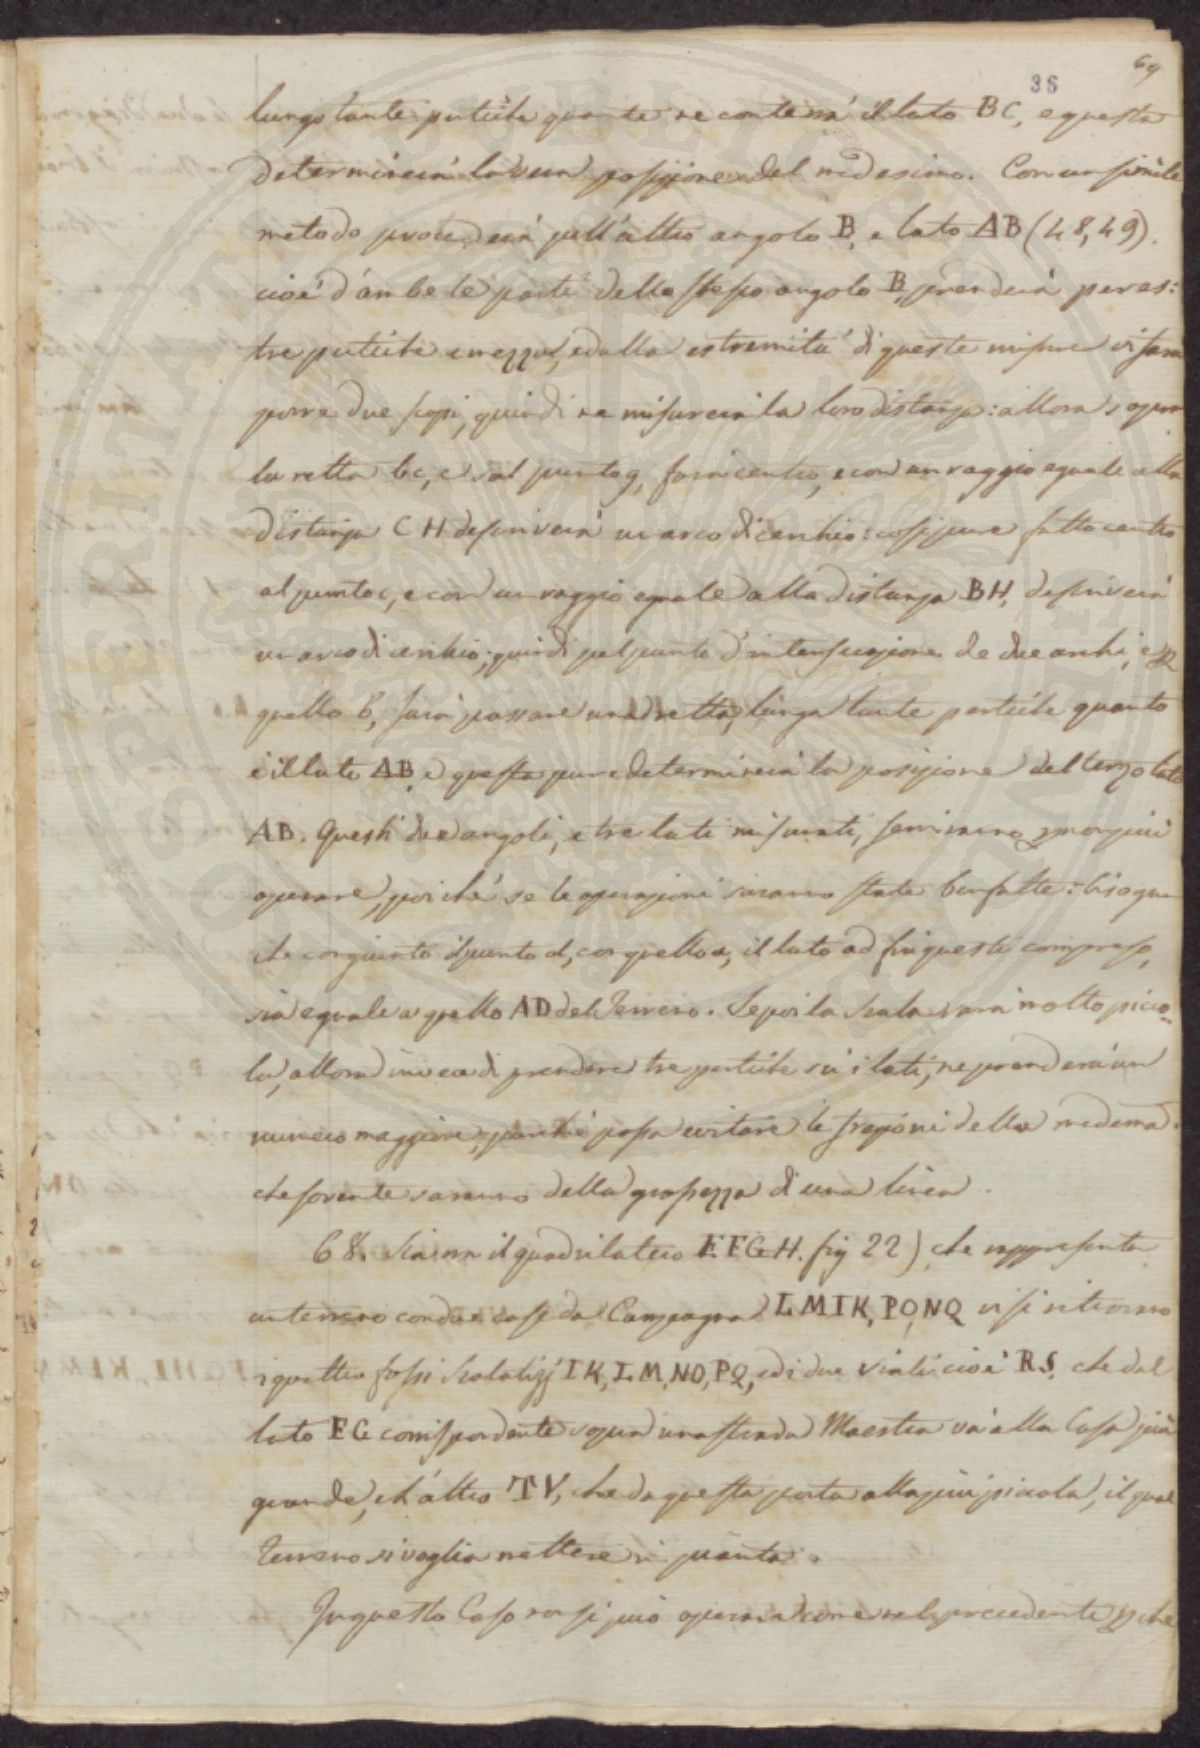 69
36
lunga tante pertiche quante ne conterrà il lato BC, e questa
determinerà la vera posizione del medesimo. Con un simile
metodo procederà pell'altro angolo B, e lato AB (48,49).
cioè d'ambe le parti dello stesso angolo B, prenderà per es:
tre pertiche e mezza, e dalla estremità di queste misure vi farà
porre due scopi, quindi ne misurerà la loro distanza: allora sopra
la retta bc, e sul punto g, farà centro, e con un raggio eguale alla
distanza CH descriverà un arco di cerchio: così pure fatto centro
al punto c, e con un raggio eguale alla distanza BH, descriverà
un arco di cerchio; quindi pel punto d'intersecazione de due archi, e p
quello b, farà passare una retta, lunga tante pertiche quanto
è il lato AB, e questa pure determinerà la posizione del terzo lato
AB. Questi due angoli, e tre lati misurati, serviranno p non più
operare, poichè se le operazioni saranno state ben fatte: bisogna
che congiunto il punto d, con quello a, il lato ad fra questi compreso,
sia eguale a quello AD del Terreno. Se poi la scala sarà molto picco-
la, allora invece di prendere tre pertiche su i lati, ne prenderà un
numero maggiore, perchè possa evitare le frazioni della medema
che sovente saranno della grossezza di una linea.
68. Siavi il quadrilatero EFGH. fig 22) che rappresenta
un terreno con due case da Campagna LMIK, PO,NQ vi si ritrovano
i quattro fossi scolatizj IK, LM, NO, PQ, ed i due viali cioè RS, che dal
lato FG corrispondente sopra una strada Maestra và alla Casa più
grande, e l'altro TV, che da questa porta alla più piccola, il qual
Terreno si voglia mettere in pianta.
In questo Caso non si può operare come nel precedente p che